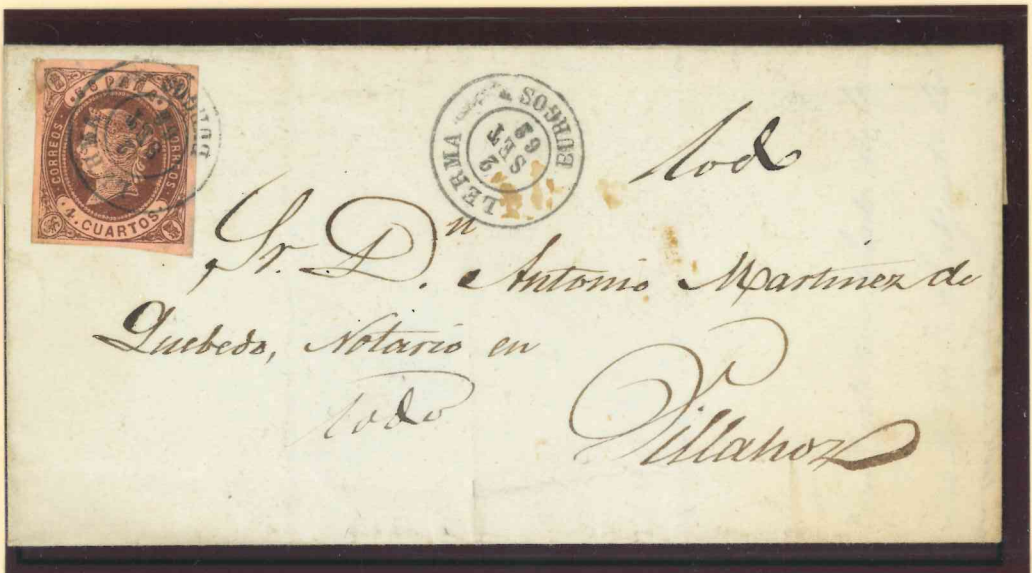 ESPAÑA
CORREOS CORREOS
4. CUARTOS.
LERMA BURGOS
LERMA BURGOS
2
SET
62
tod
Sr. Dn. Antonio Martinez de
Quebedo, Notario en
todo
Villahoz